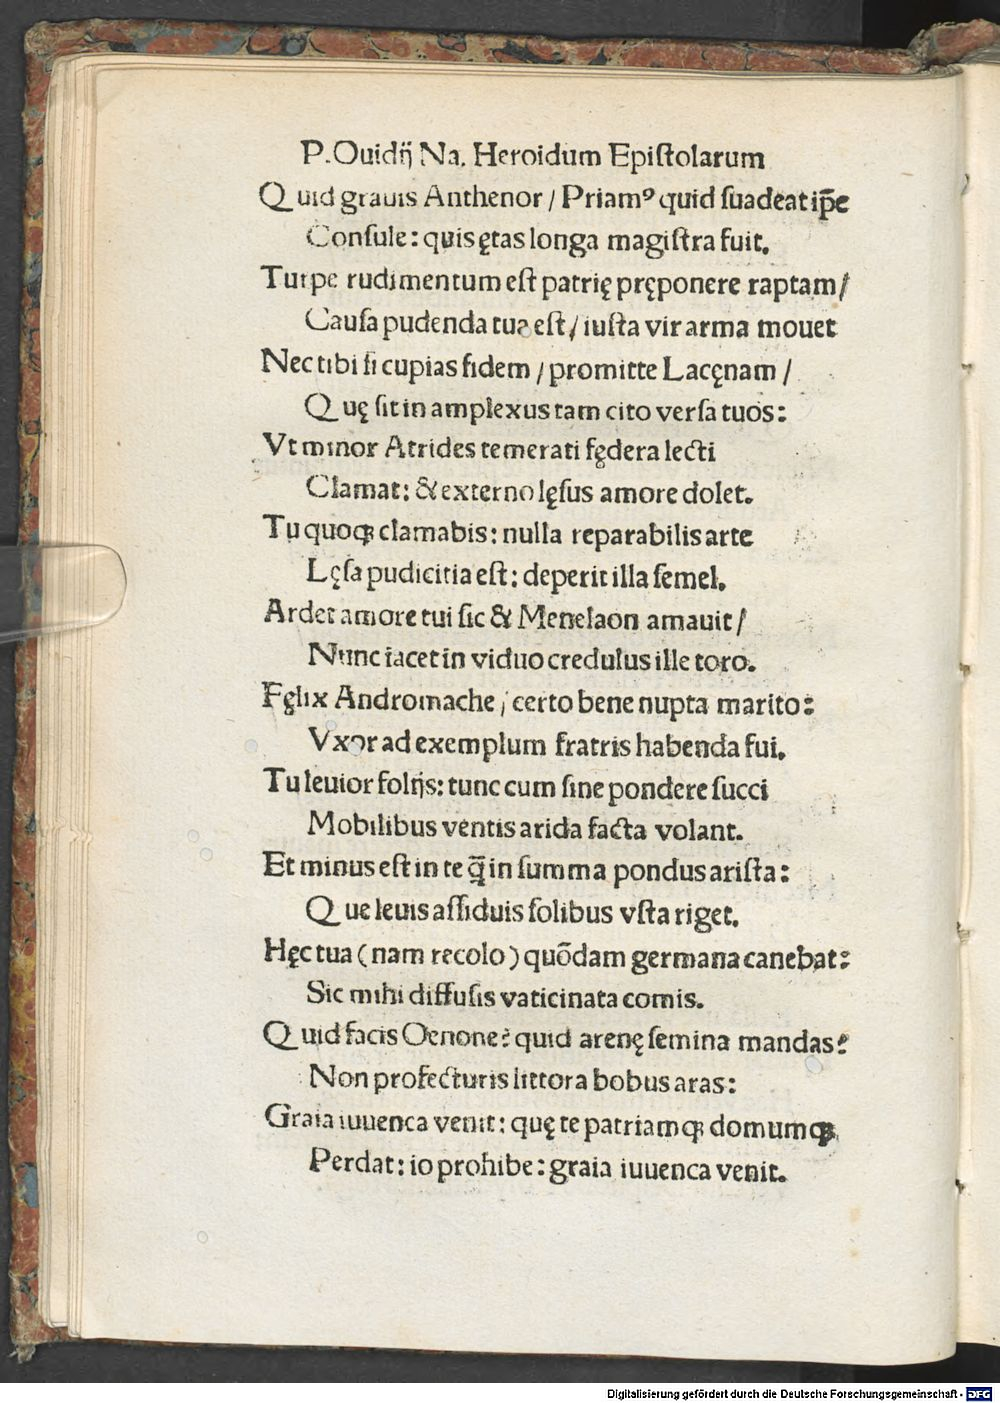 P. Ouidij Na. Heroidum Epiſtolarum
Quid grauis Anthenor / Priamꝰ quid ſuadeat ip̄e
Conſule: quis ętas longa magiſtra fuit.
Turpe rudimentum eſt patrię pręponere raptam /
Cauſa pudenda tua eſt / iuſta vir arma mouet
Nec tibi ſi cupias fidem / promitte Lacęnam /
Quę ſit in amplexus tam cito verſa tuos:
Vt minor Atrides temerati fędera lecti
Clamat: & externo lęſus amore dolet.
Tu quoqꝫ clamabis: nulla reparabilis arte
Lęſa pudicitia eſt: deperit illa ſemel.
Ardet amore tui ſic & Menelaon amauit /
Nunc iacet in viduo credulus ille toro.
Fęlix Andromache / certo bene nupta marito:
Vxor ad exemplum fratris habenda fui.
Tu leuior folijs: tunc cum ſine pondere ſucci
Mobilibus ventis arida facta volant.
Et minus eſt in te q̄ in ſumma pondus ariſta:
Que leuis aſſiduis ſolibus vſta riget.
Hęc tua (nam recolo) quōdam germana canebat:
Sic mihi diffuſis vaticinata comis.
Quid facis Oenone? quid arenę ſemina mandas?
Non profecturis littora bobus aras:
Graia iuuenca venit: quę te patriamqꝫ domumqꝫ
Perdat: io prohibe: graia iuuenca venit.
Digitalisierung gefördert durch die Deutsche Forschungsgemeinschaft - DFG